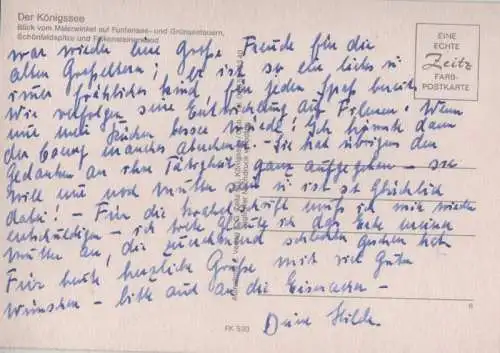 Der Königssee
Blick vom Malerwinkel auf Funtensee- und Grünseetauern,
Schönfeldspitze und Falkensteinerwand
EINE
ECHTE
Zeitz
FARB-
POSTKARTE
war wieder eine große Freude für die
alten Großeltern! Er ist so ein liebes u
immer fröhliches Kind, für jeden Spaß bereit.
Wir verfolgen seine Entwicklung auf Filmen! Wenn
nur mein Rücken besser würde! Ich könnte dann
der Conny manches abnehmen. Sie hat übrigens den
Gedanken an ihre Tätigkeit ganz aufgegeben – sie
will nur noch Mutter sein u ist so glücklich
dabei! – Für die Schrift muß ich mich wieder
entschuldigen – ich glaube ich das Erbe meiner
Mutter an, die zunehmend schlechter hat
Für heute herzliche Grüße mit viel guten
Wünschen – bitte auch an die
Deine Hilde.
FK 530